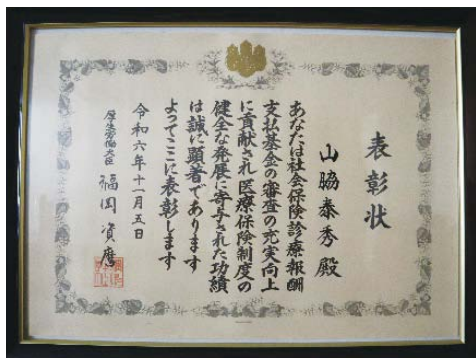 表彰状
山脇泰秀殿
あなたは社会保険診療報酬
支払基金の審査の充実向上
に貢献され医療保険制度の
健全な発展に寄与された功績
は誠に顕著であります
よってここに表彰します
令和六年十一月五日
厚生労働大臣 福岡資麿